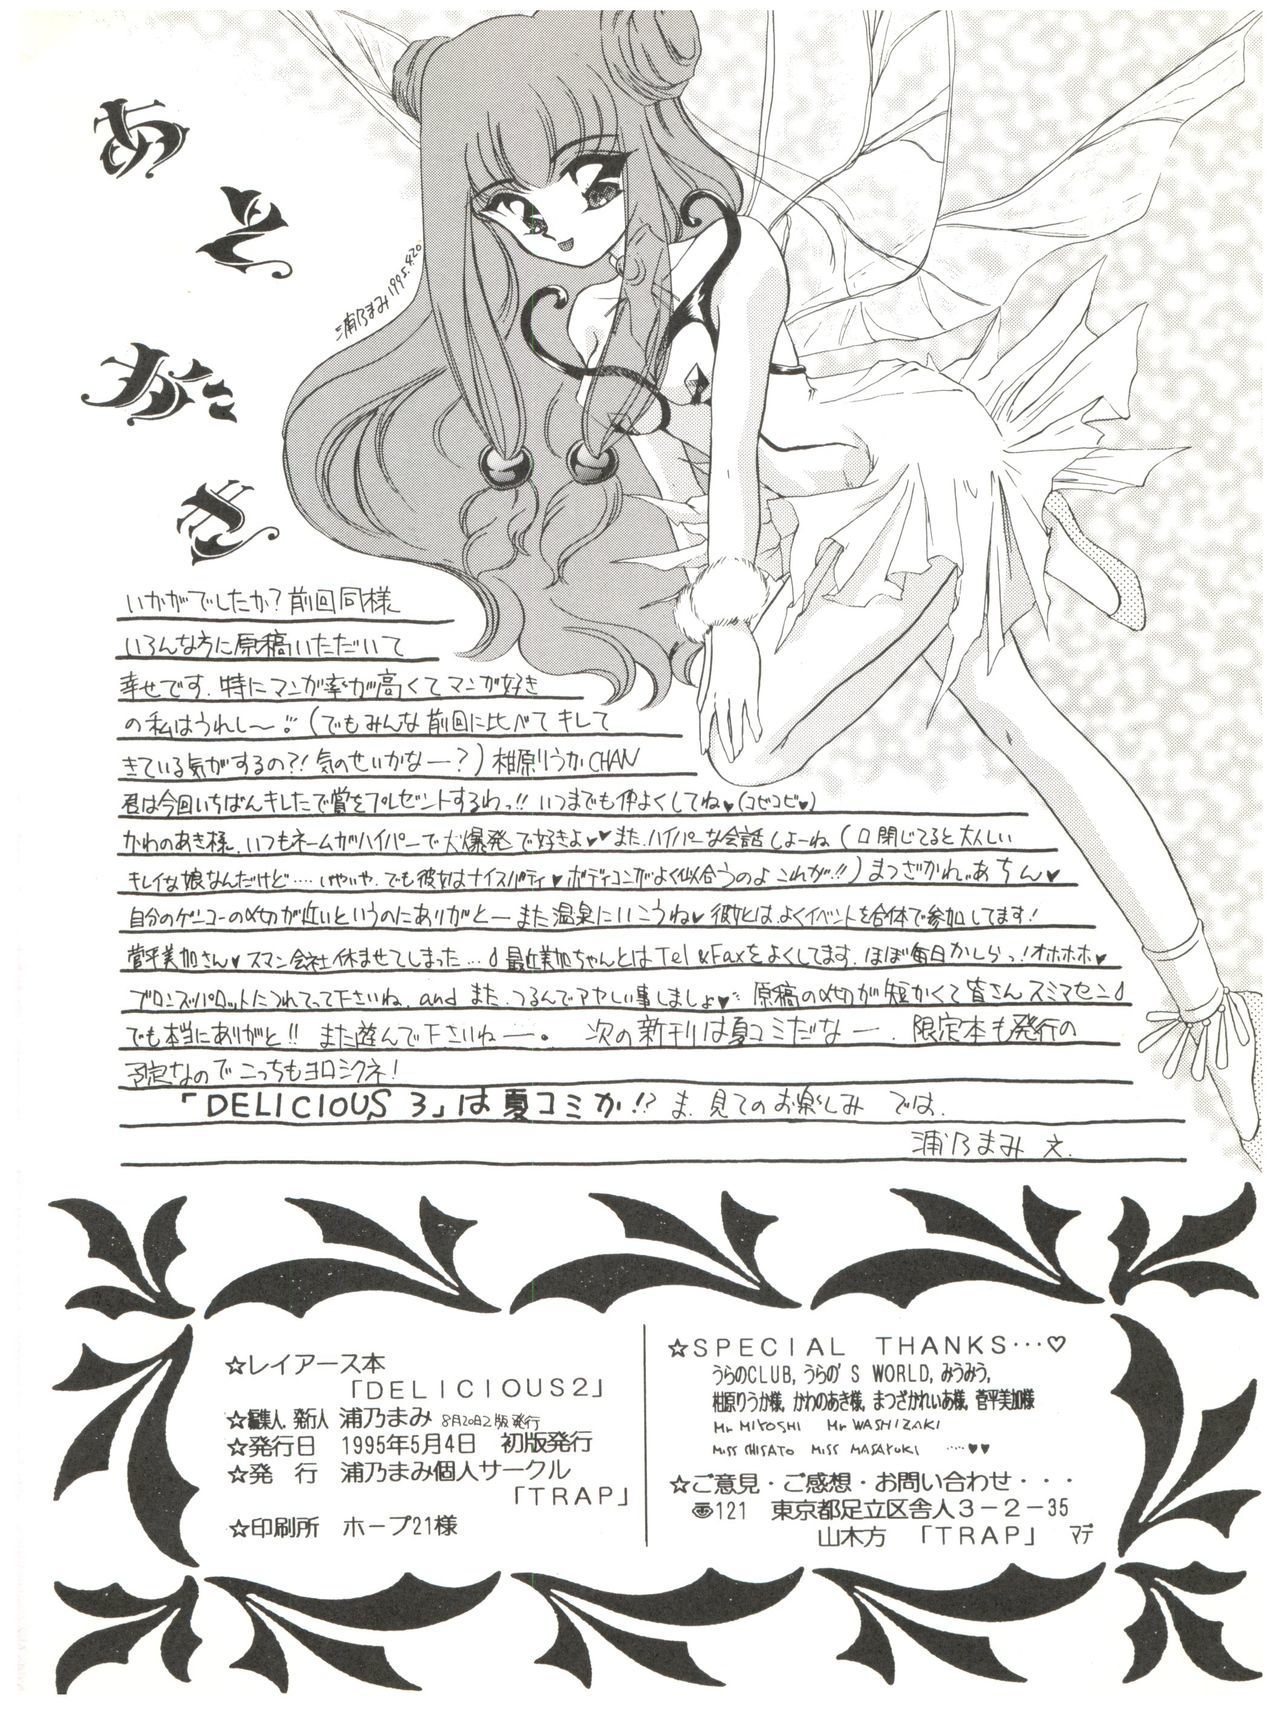 あとがき
浦乃まみ 1995.4.20
いかがでしたか?前回同様
いろんな方に原稿いただいて
幸せです.特にマンガ率が高くてマンガ好き
の私はうれし〜!!(でもみんな前回に比べてキレて
きている気がするの?!気のせいかなー?)柑原りうかCHAN
君は今回いちばんキレたで賞をプレゼントするわっ!!いつまでも仲よくしてね♥(コビコビ♥)
かわのあき様.いつもネームがハイパーで大爆発で好きよ♥♥また.ハイパーな会話しよーね(口閉じてると大人しい
キレイな娘なんだけど……いやいや.でも彼女はナイスバディ♥ボディコンがよく似合うのよこれが!!)まつざかれぃあちん♥
自分のゲンコーの〆切が近いというのにありがとーまた温泉にいこうね♥彼女とは.よくイベントを合体で参加してます!
菅平美加さん♥スマン会社休ませてしまった…♩最近美加ちゃんとはTel&Faxをよくしてます.ほぼ毎日かしらっ!オホホホ♥
ブロンズパロットにつれてって下さいね.andまた.つるんでアヤしい事しましょ♥原稿の〆切が短かくて皆さんスミマセン♩
でも本当にありがと!!また遊んで下さいねー。次の新刊は夏コミだなー.限定本も発行の
予定なのでこっちもヨロシクネ!
「DELICIOUS 3」は夏コミか!?ま.見てのお楽しみ では.
浦乃まみ 文.
☆レイアース本
「DELICIOUS2」
☆編集人、発行人 浦乃まみ 8月20日2版発行
☆発行日 1995年5月4日 初版発行
☆発 行 浦乃まみ個人サークル
「TRAP」
☆印刷所 ホープ21様
☆SPECIAL THANKS…♡
うらのCLUB, うらの'S WORLD, みうみう,
柑原りうか様, かわのあき様, まつざかれいあ様, 菅平美加様
Mr MIYOSHI Mr WASHIZAKI
MISS CHISATO MISS MASAYUKI ……♥♥
☆ご意見・ご感想・お問い合わせ・・・
〠121 東京都足立区舎人3−2−35
山木方 「TRAP」 マデ